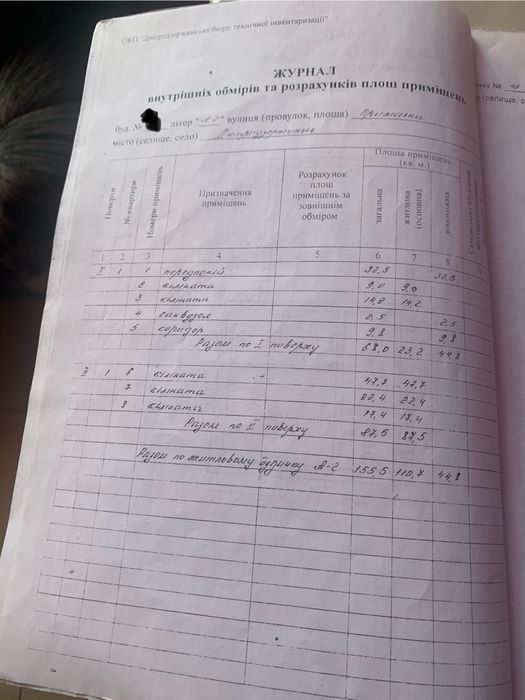 ОКП "Дніпродзержинське бюро технічної інвентаризації"
ЖУРНАЛ
внутрішніх обмірів та розрахунків площ приміщень
буд. № літер " " вулиця (провулок, площа)
місто (селище, село) Дніпродзержинськ
Поверхи № квартири Номери приміщень Призначення приміщень Розрахунок площ приміщень за зовнішнім обміром Площа приміщень (кв. м.) загальна житлова (основна) допоміжна
1 2 3 4 5 6 7 8 9
I 1 1 передпокій 32,5 32,5
2 кімната 9,0 9,0
3 кімната 14,2 14,2
4 санвузол 2,5 2,5
5 коридор 9,8 9,8
Разом по I поверху 68,0 23,2 44,8
II 1 6 кімната 47,7 47,7
7 кімната 22,4 22,4
8 кімната 17,4 17,4
Разом по II поверху 87,5 87,5
Разом по житловому будинку А-2 155,5 110,7 44,8